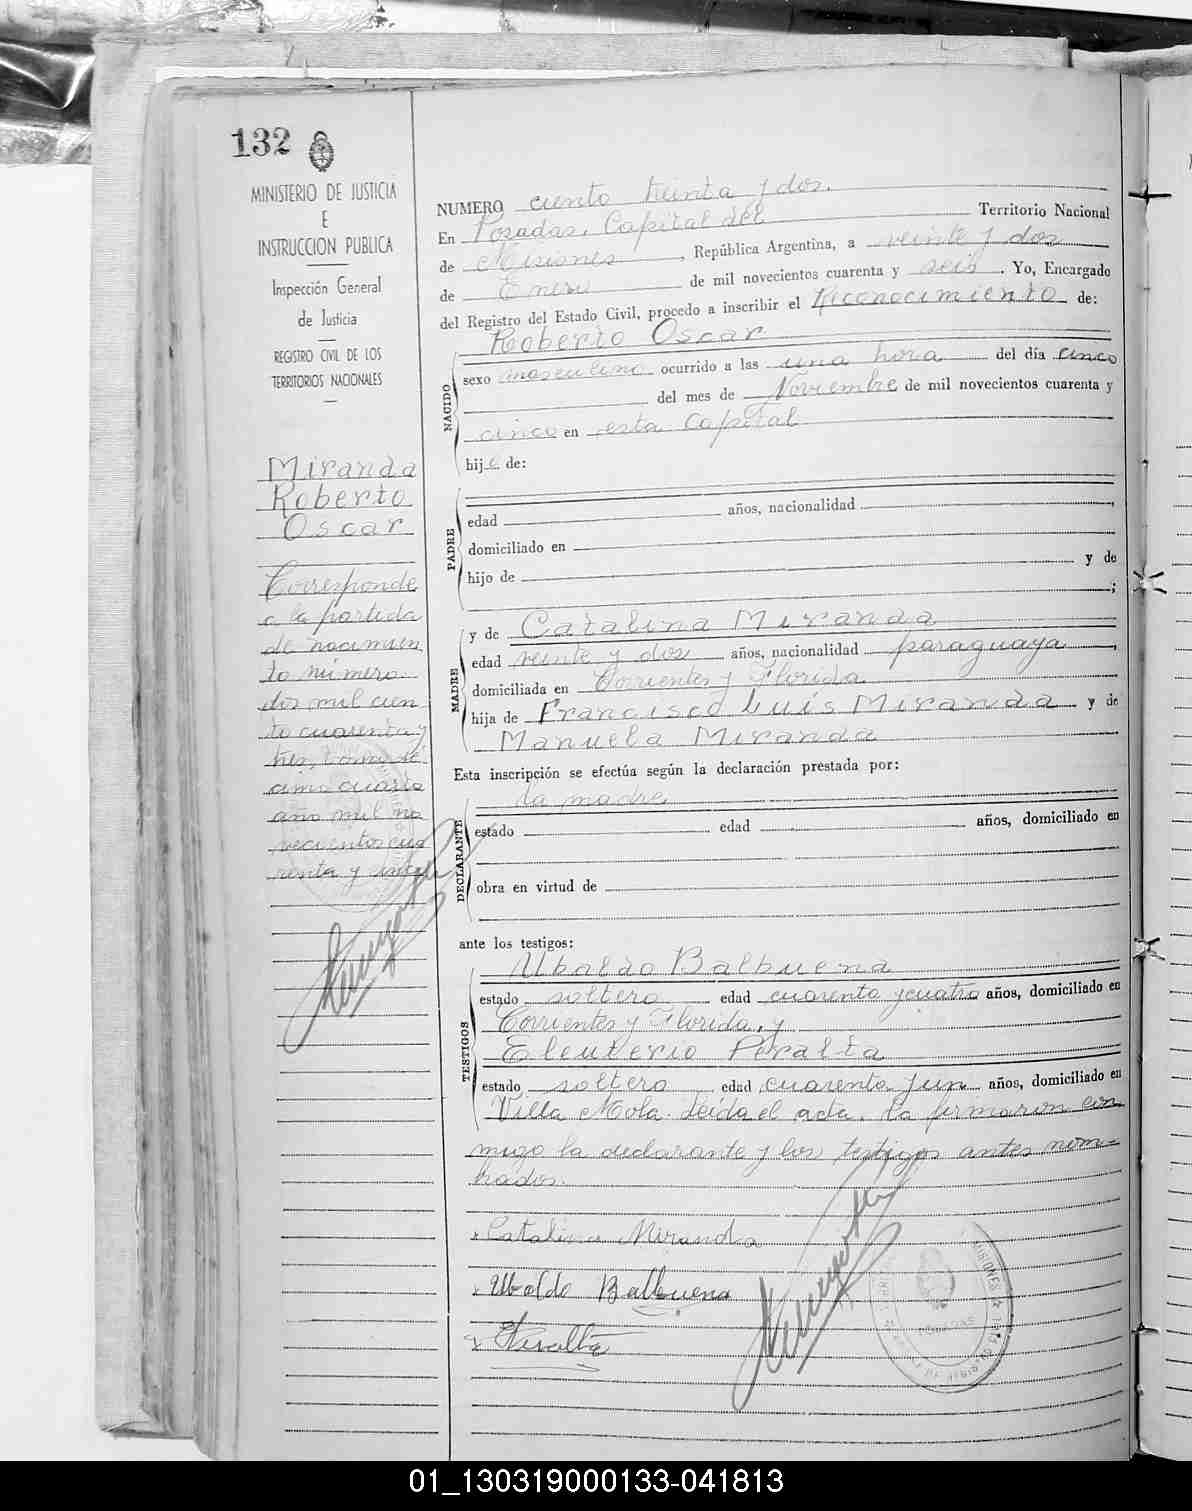 132
MINISTERIO DE JUSTICIA
E
INSTRUCCION PUBLICA
Inspección General
de Justicia
REGISTRO CIVIL DE LOS
TERRITORIOS NACIONALES
Miranda
Roberto
Oscar
Corresponde
a la partida
de nacimien
to número
dos mil cien
to cuarenta y
tres, tomo dé
cimo cuarto
año mil no
vecientos cua
renta y
NUMERO ciento treinta y dos.
En Posadas, Capital del Territorio Nacional
de Misiones, República Argentina, a veinte y dos
de Enero de mil novecientos cuarenta y seis. Yo, Encargado
del Registro del Estado Civil, procedo a inscribir el Reconocimiento de:
NACIDO
Roberto Oscar
sexo masculino ocurrido a las una hora del día cinco
del mes de Noviembre de mil novecientos cuarenta y
cinco en esta Capital
hijo de:
PADRE
edad años, nacionalidad
domiciliado en
hijo de y de
;
MADRE
y de Catalina Miranda
edad veinte y dos años, nacionalidad paraguaya
domiciliada en Corrientes y Florida
hija de Francisco Luis Miranda y de
Manuela Miranda
Esta inscripción se efectúa según la declaración prestada por:
DECLARANTE
la madre
estado edad años, domiciliado en
obra en virtud de
ante los testigos:
TESTIGOS
Ubaldo Balbuena
estado soltero edad cuarenta y cuatro años, domiciliado en
Corrientes y Florida, y
Eleuterio Peralta
estado soltero edad cuarenta y un años, domiciliado en
Villa Mola. Leida el acta, la firmaron con
migo la declarante y los testigos antes nom=
brados.
Catalina Miranda
Ubaldo Balbuena
EPeralta
POSADAS
01_130319000133-041813